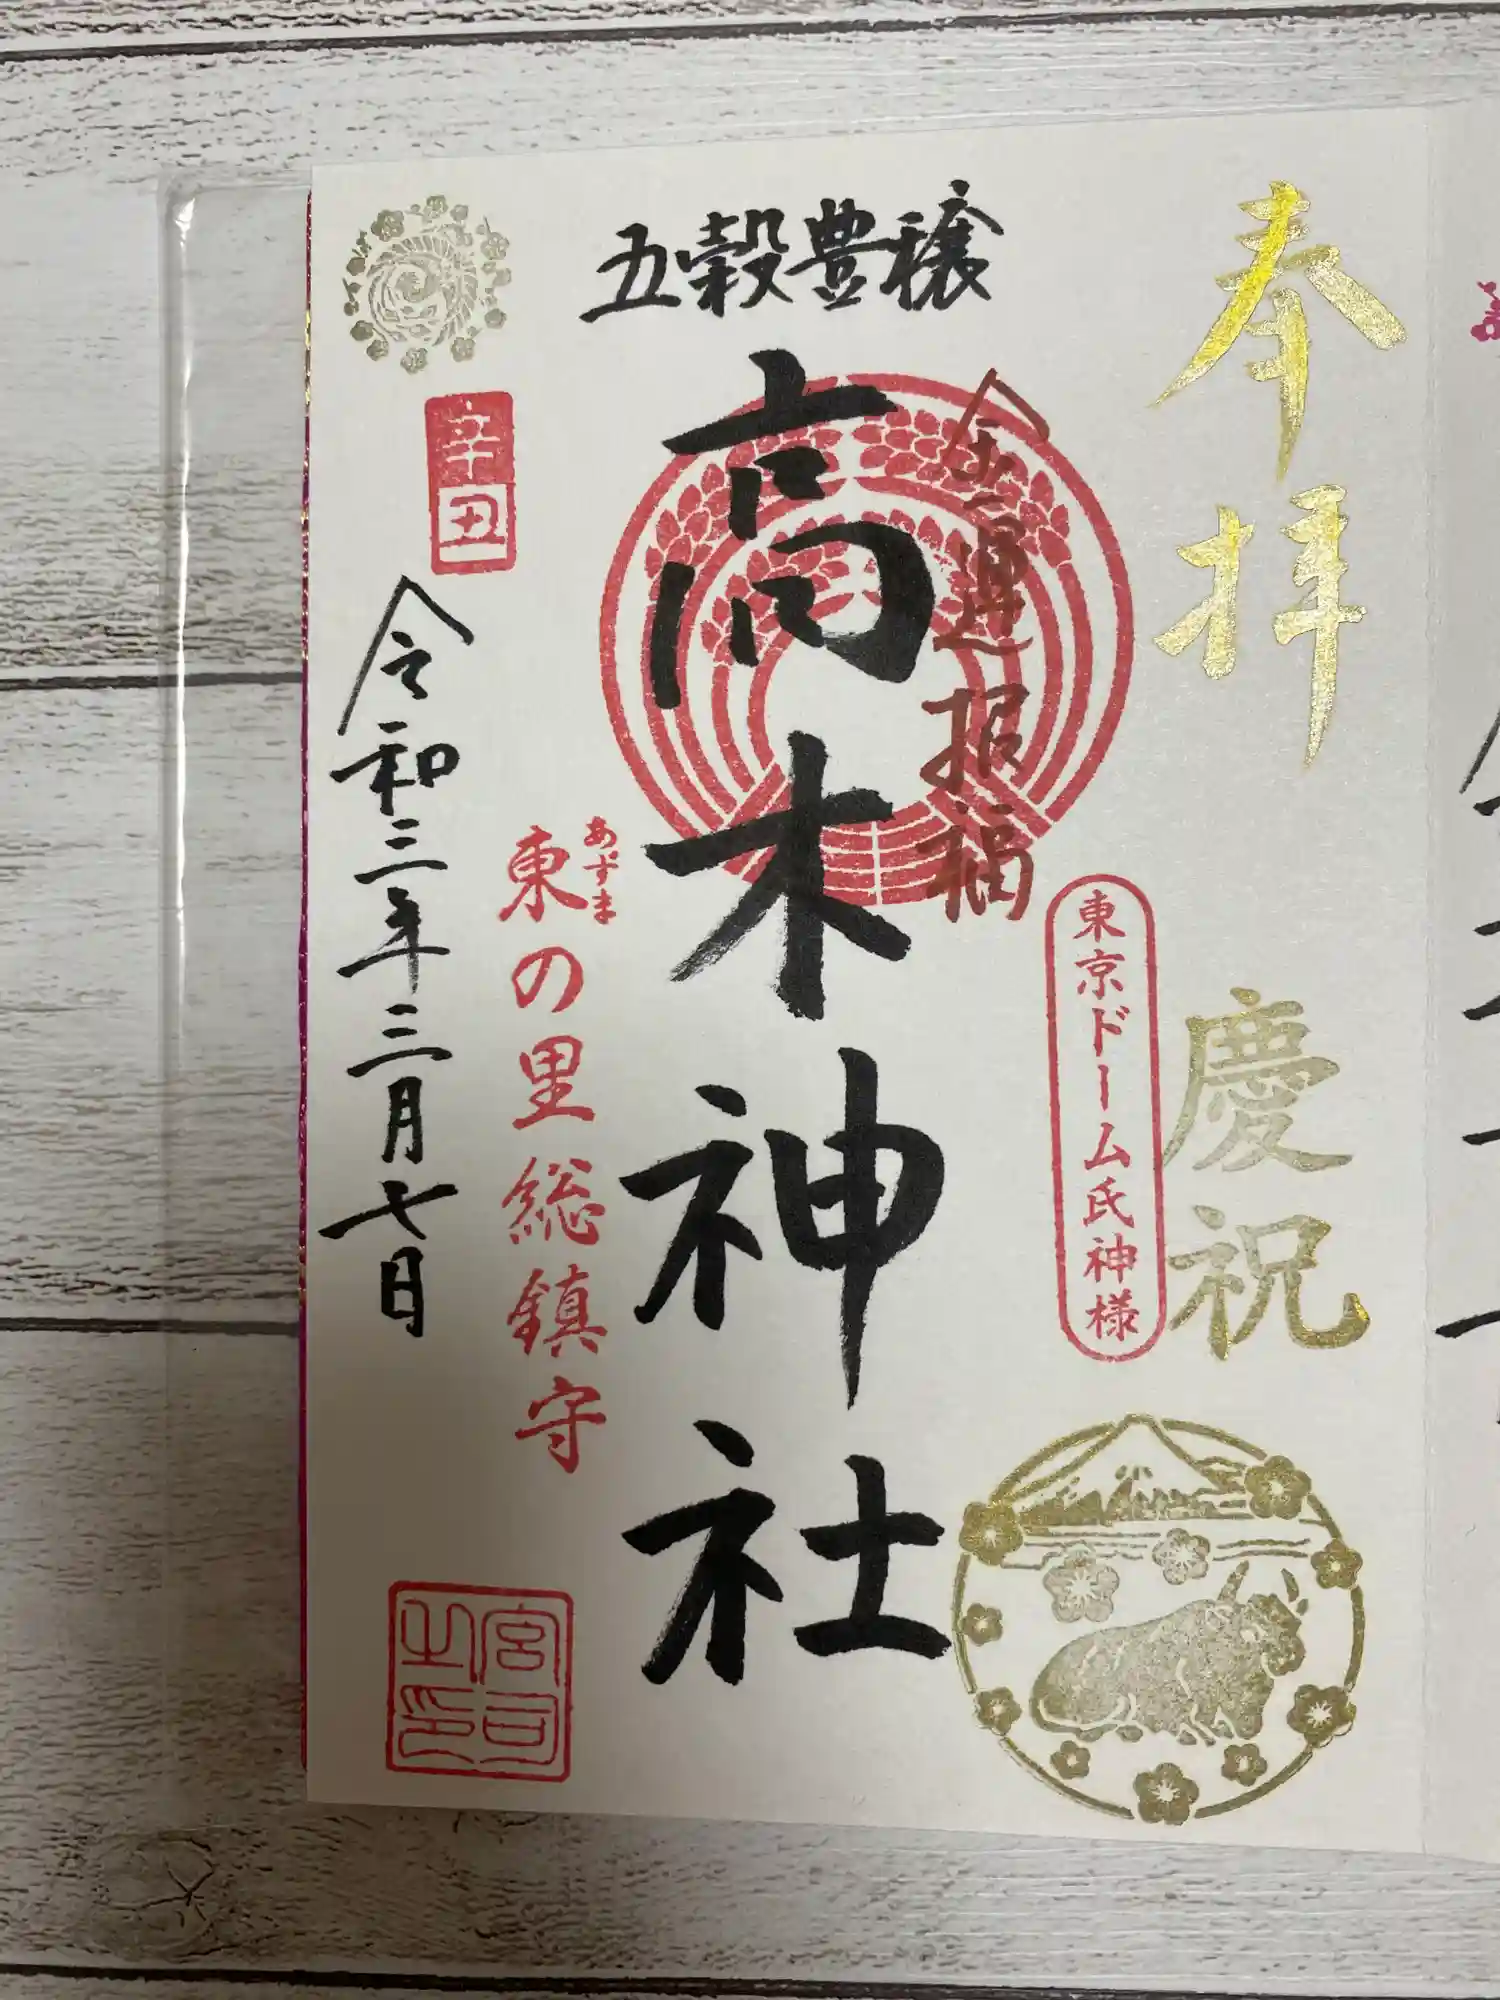 奉拝
慶祝
東京ドーム氏神様
金運招福
五穀豊穣
高木神社
あずま
東の里総鎮守
辛丑
令和三年三月七日
宮司之印